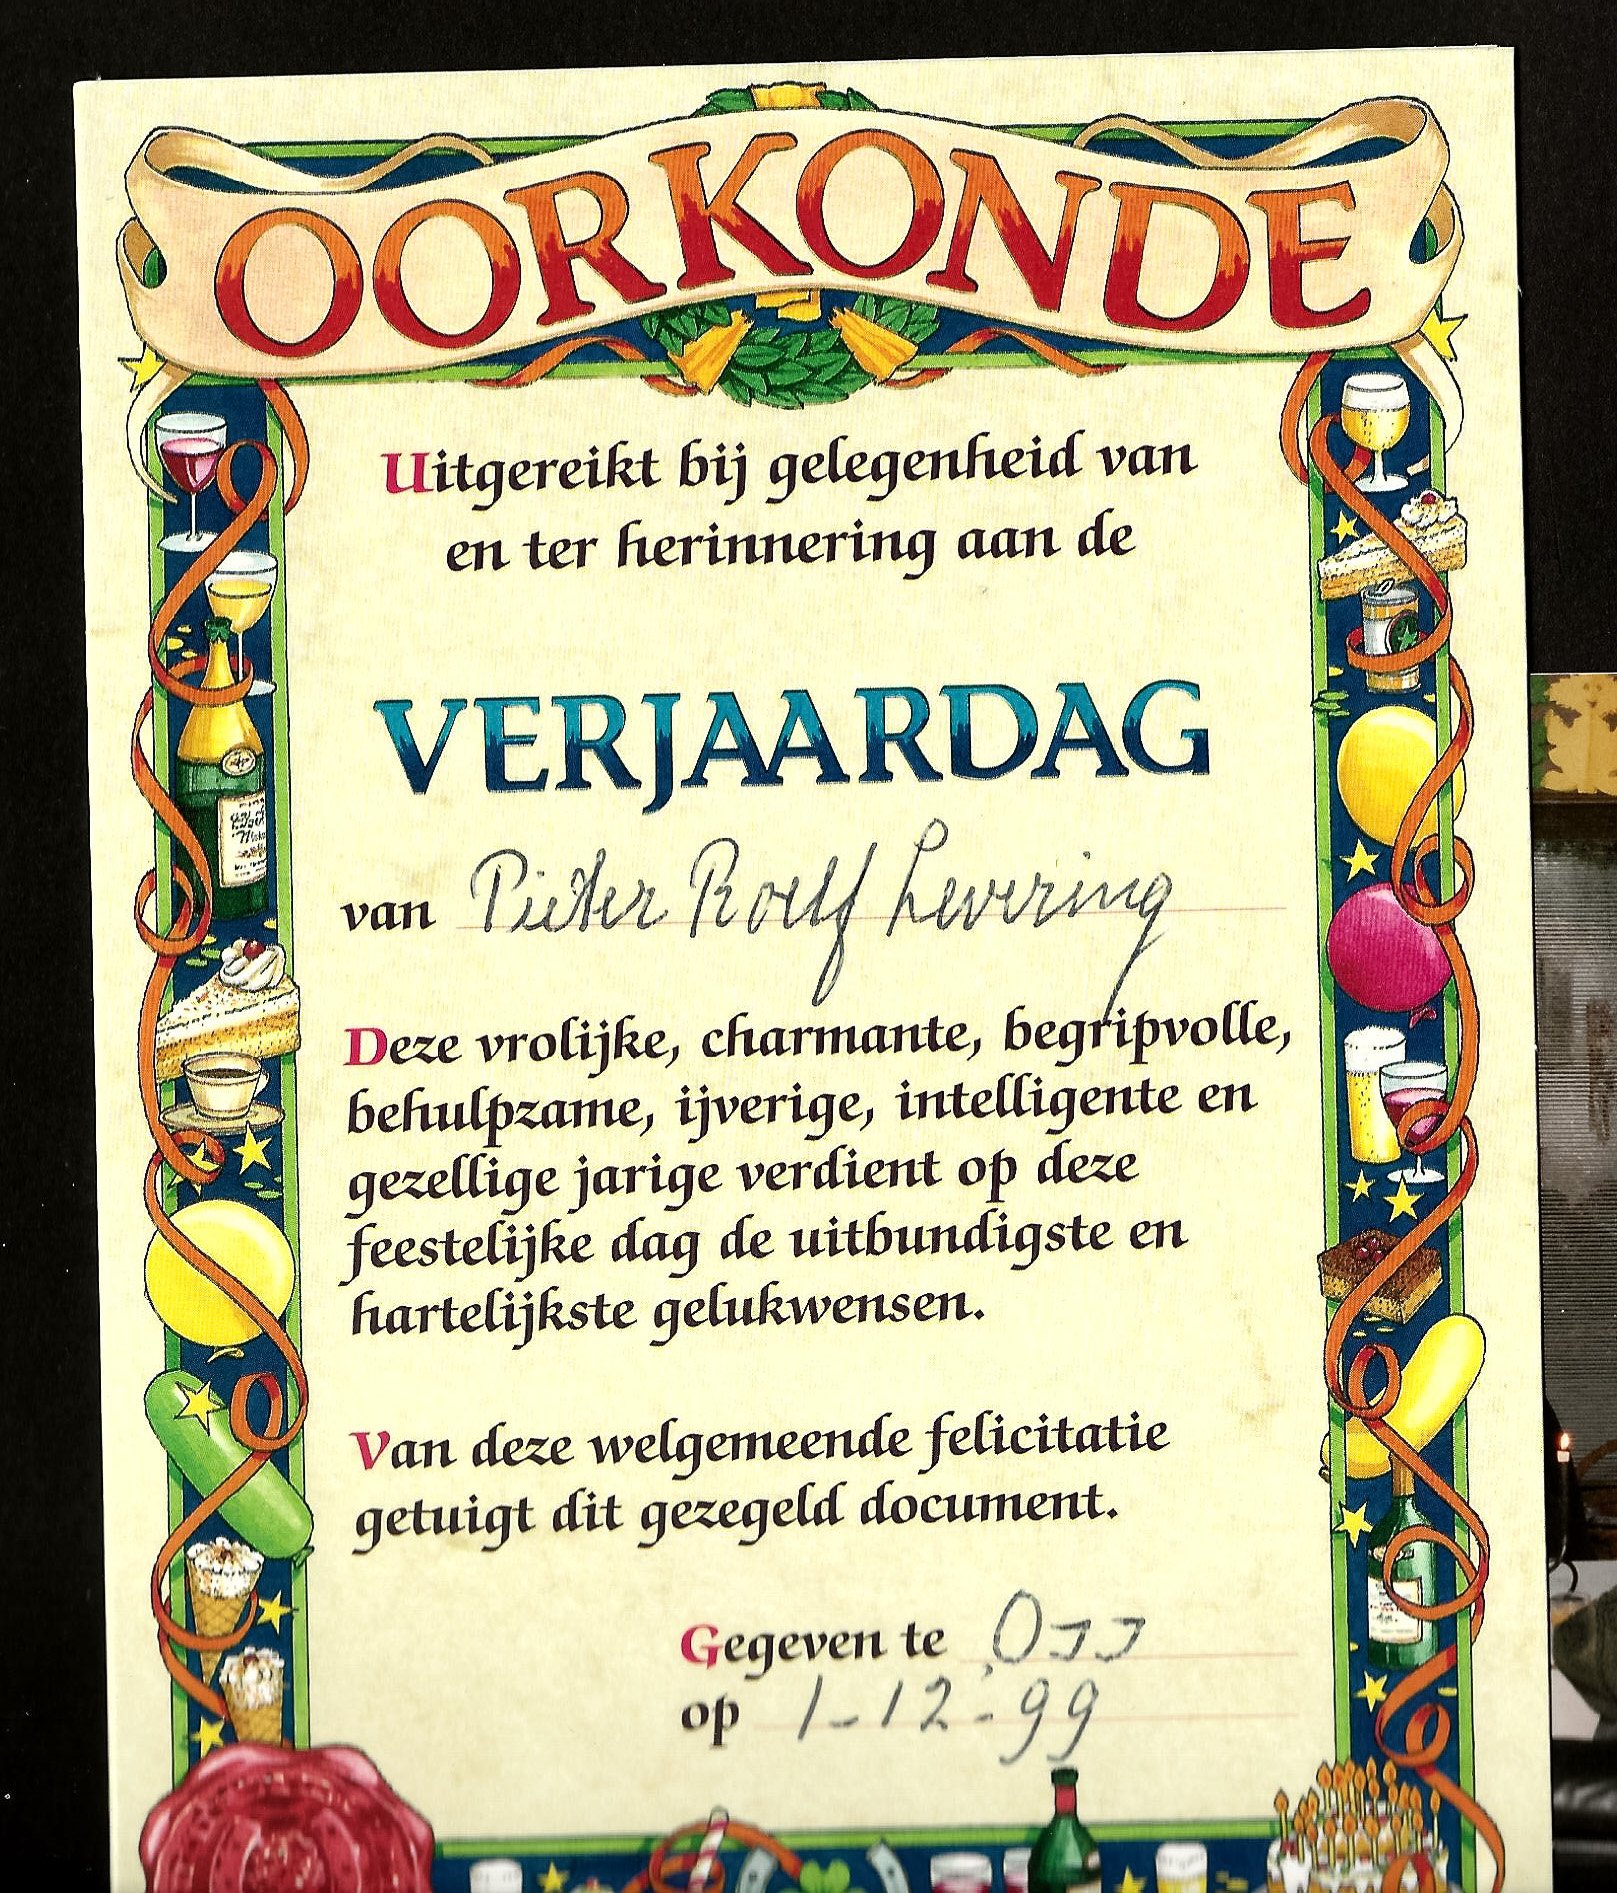 OORKONDE
Uitgereikt bij gelegenheid van
en ter herinnering aan de
VERJAARDAG
van Pieter Roelf Levering
Deze vrolijke, charmante, begripvolle,
behulpzame, ijverige, intelligente en
gezellige jarige verdient op deze
feestelijke dag de uitbundigste en
hartelijkste gelukwensen.
Van deze welgemeende felicitatie
getuigt dit gezegeld document.
Gegeven te Oss
op 1-12-99